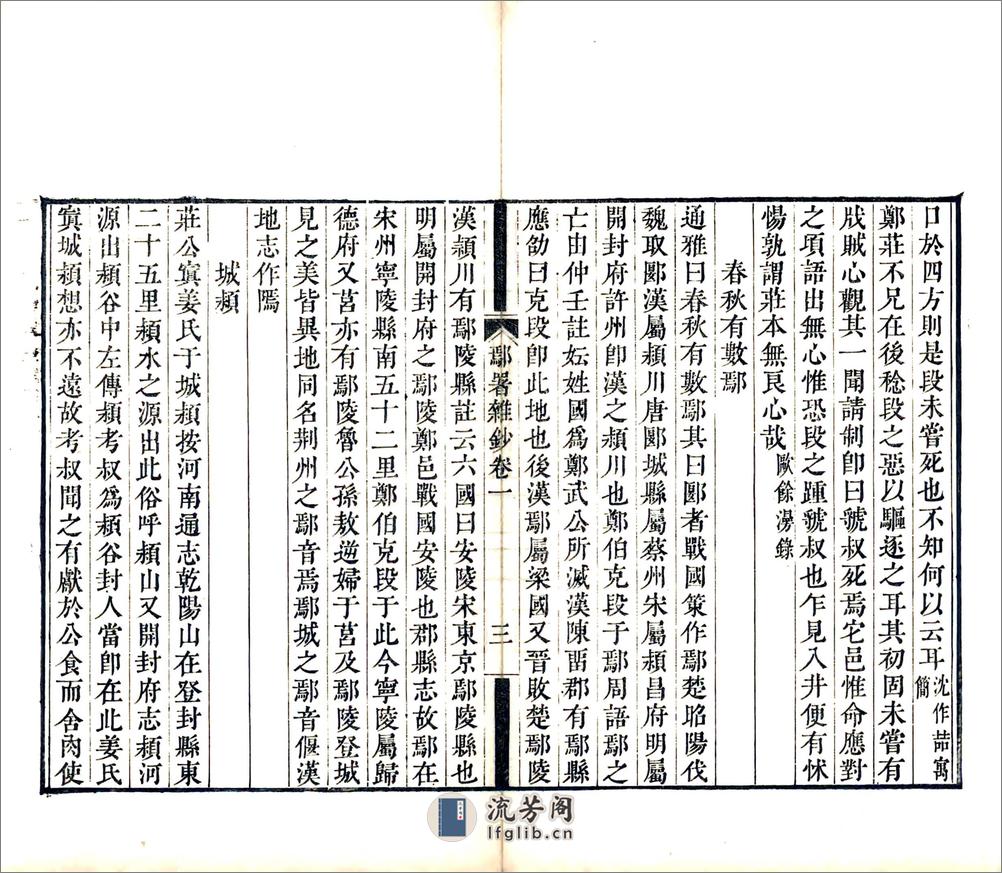 口於四方則是段未嘗死也不知何以云耳沈作喆寓簡
鄭莊不兄在後稔段之惡以驅逐之耳其初固未嘗有
戕賊心觀其一聞請制卽曰虢叔死焉它邑惟命應對
之項語出無心惟恐段之踵虢叔也乍見入井便有怵
惕孰謂莊本無良心哉歐餘漫錄
春秋有數鄢
通雅曰春秋有數鄢其曰郾者戰國策作鄢楚昭陽伐
魏取郾漢屬潁川唐郾城縣屬蔡州宋屬潁昌府明屬
開封府許州卽漢之潁川也鄭伯克段于鄢周語鄢之
亡由仲壬註妘姓國爲鄭武公所滅漢陳畱郡有鄢縣
應劭曰克段卽此地也後漢鄢屬梁國又晉敗楚鄢陵
鄢署雜鈔卷一
三
漢潁川有鄢陵縣註云六國曰安陵宋東京鄢陵縣也
明屬開封府之鄢陵鄭邑戰國安陵也郡縣志故鄢在
宋州寧陵縣南五十二里鄭伯克段于此今寧陵屬歸
德府又莒亦有鄢陵魯公孫敖逆婦于莒及鄢陵登城
見之美皆異地同名荆州之鄢音焉鄢城之鄢音偃漢
地志作隖
城潁
莊公寘姜氏于城潁按河南通志乾陽山在登封縣東
二十五里潁水之源出此俗呼潁山又開封府志潁河
源出潁谷中左傳潁考叔爲潁谷封人當卽在此姜氏
寘城潁想亦不遠故考叔聞之有獻於公食而舍肉使
流芳阁
lfglib.cn